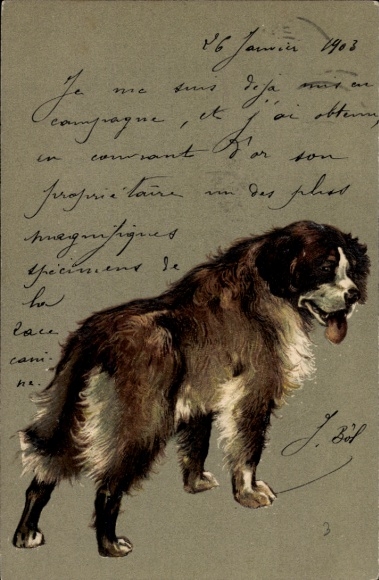 26 Janvier 1903
Je me suis déjà mis en
campagne, et j'ai obtenu,
en couvrant d'or son
propriétaire un des pluss
magnifiques
spécimens de
la
race
cani-
ne.
J. Böl
3